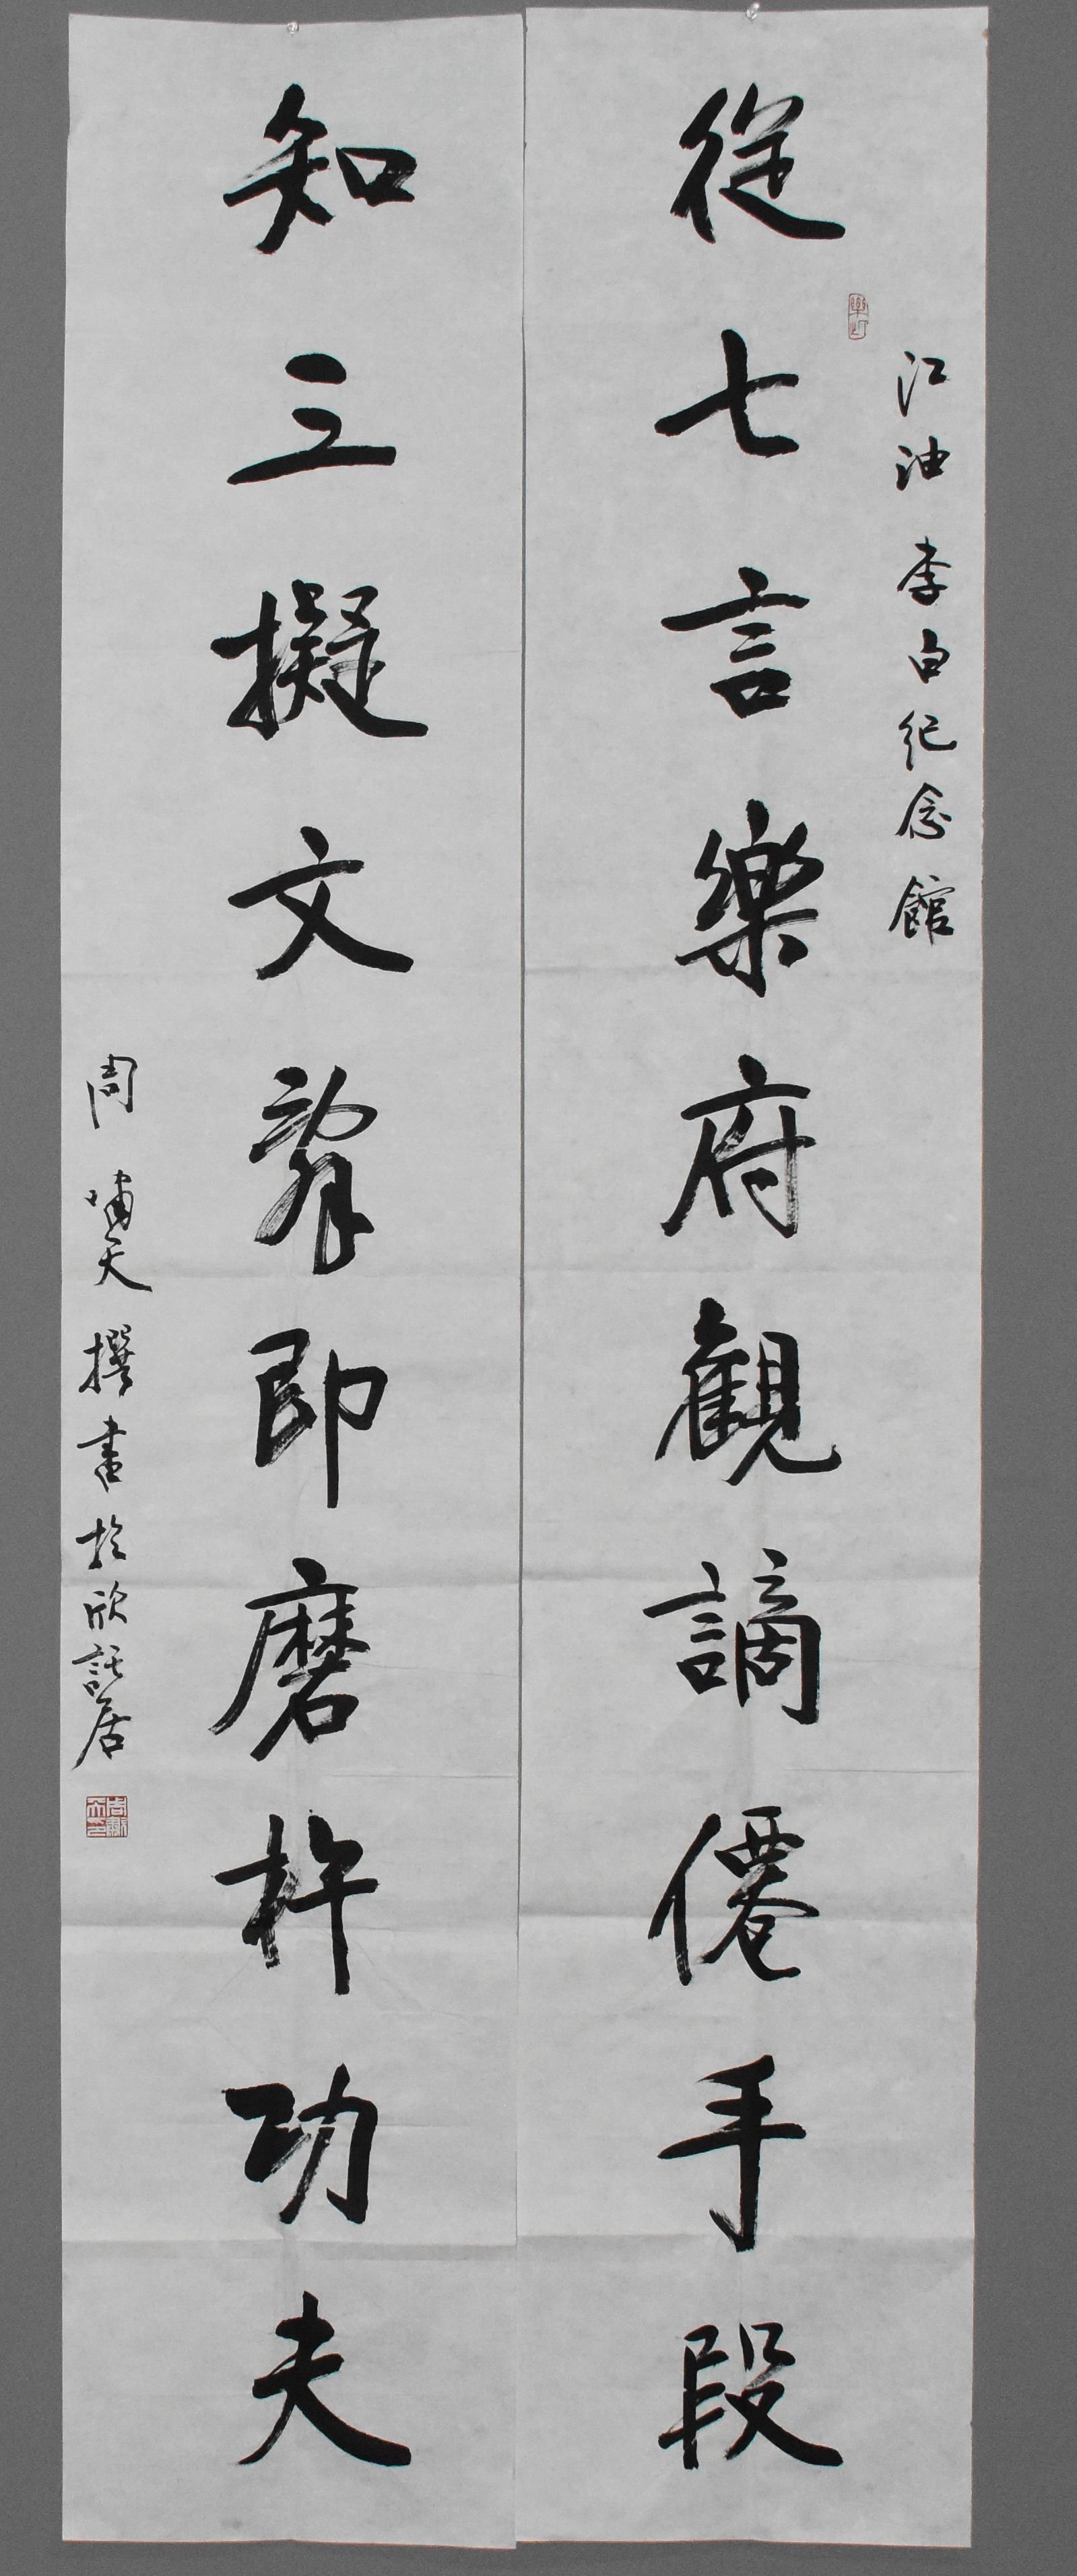 江油 李白紀念館
從七言樂府觀謫僊手段
知三擬文即磨杵功夫
周嘯天撰書於欣託居
周嘯天印